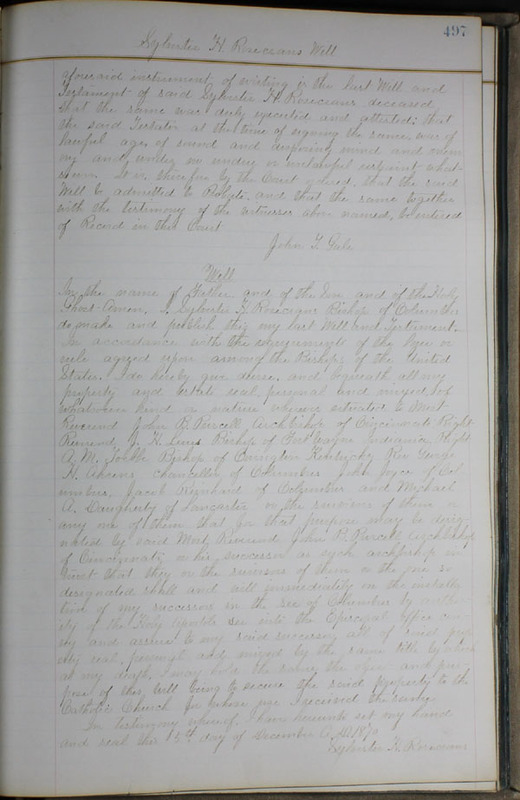 497
Sylvester H. Rosecrans Will
aforesaid instrument of writing is the last Will and
Testament of said Sylvester H. Rosecrans deceased
that the same was duly executed and attested; that
the said Testator at the time of signing the same was of
lawful age, of sound and disposing mind and mem
ory and under no undue or unlawful restraint what-
soever. It is therefore by the Court ordered, that the said
Will be admitted to Probate and that the same together
with the testimony of the witnesses above named, be entered
of Record in this Court
John T. Gale
Will
In the name of Father and of the Son and of the Holy
Ghost Amen. I Sylvester H. Rosecrans Bishop of Columbus
do make and publish this my last Will and Testament.
In accordance with the requirements of the law or
rule agreed upon among the Bishops of the United
States. I do hereby give devise and bequeath all my
property and estate real, personal and mixed of
whatsoever kind or nature wherever situated to Most
Reverend John B. Purcell Archbishop of Cincinnati Right
Reverend J. H. Luers Bishop of Fort Wayne Indiana Right
A. M. Toebbe Bishop of Covington Kentucky Rev George
H. Ahrens chancellor of Columbus John Joyce of Col
umbus, Jacob Reinhard of Columbus and Michael
A. Daugherty of Lancaster or the survivor of them or
any one of them that for that purpose may be desig
nated by said Most Reverend John B. Purcell Archbishop
of Cincinnati or his successor as such archbishop in
trust that they or the survivors of them or the one so
designated shall and will immediately on the installa
tion of my successor in the see of Columbus by author
ity of the Holy Apostolic see into the Episcopal office con
vey and assure to my said successor all of said prop
erty real, personal and mixed by the same title by which
at my death I may hold the same, the object and pur
pose of this will being to secure the said property to the
Catholic Church for whose use I received the same
In testimony whereof I have hereunto set my hand
and seal this 15th day of December A.D. 1870
Sylvester H. Rosecrans